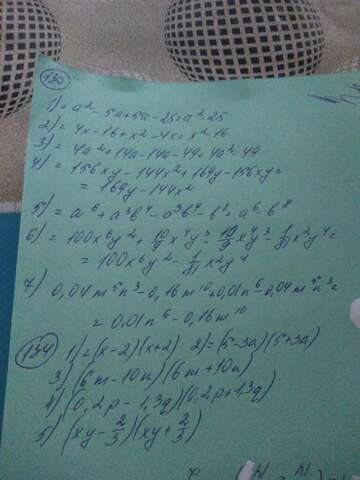 130
1) = a² - 5a + 5a - 25 = a² - 25
2) = 4x - 16 + x² - 4x = x² - 16
3) = 4a² + 14a - 14a - 49 = 4a² - 49
4) = 156xy - 144x² + 169y - 156xy =
= 169y - 144x²
5) = a⁶ + a³b⁴ - a³b⁴ - b⁸ = a⁶ - b⁸
6) = 100x⁶y² + 10/9 x⁴y³ - 10/9 x⁴y³ - 1/81 x²y⁴ =
= 100x⁶y² - 1/81 x²y⁴
7) 0,04m⁵n³ - 0,16m¹⁰ + 0,01n⁶ - 0,04m⁵n³ =
= 0,01n⁶ - 0,16m¹⁰
134 1) = (x - 2)(x + 2) 2) = (5 - 3a)(5 + 3a)
3) (6m - 10n)(6m + 10n)
4) (0,2p - 1,3q)(0,2p + 1,3q)
5) (xy - 2/3)(xy + 2/3)